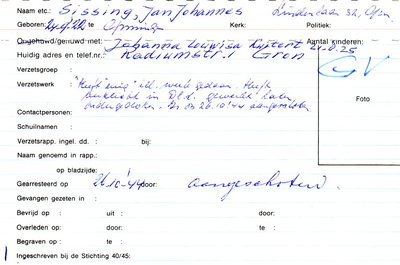 Naam etc.: Sissing, Jan Johannes Lindenlaan 32, Gron
Geboren: te Kerk: Politiek:
Ongehuwd/gehuwd met: Johanna Louwisa Aantal kinderen:
Huidig adres en telef.nr.: Radiumstr. 1 Gron
Verzetsgroep GV
Verzetswerk : "Heeft" enig" ill. werk gedaan. Heeft
in Dld. gewerkt, later
ondergedoken. Is op 26.10.'44 aangeschoten
Foto
Contactpersonen:
Schuilnaam :
Verzetsrapp. ingel. dd. : bij:
Naam genoemd in rapp.:
op bladzijde:
Gearresteerd op 26.10-'44 door: aangeschoten.
Gevangen gezeten in :
Bevrijd op : uit : door:
Overleden op: door: te :
Begraven op : te :
Ingeschreven bij de Stichting 40/45: